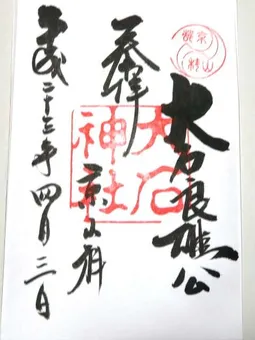 大石良雄公
奉拝
京山科
大石
神社
平成二十三年四月三日